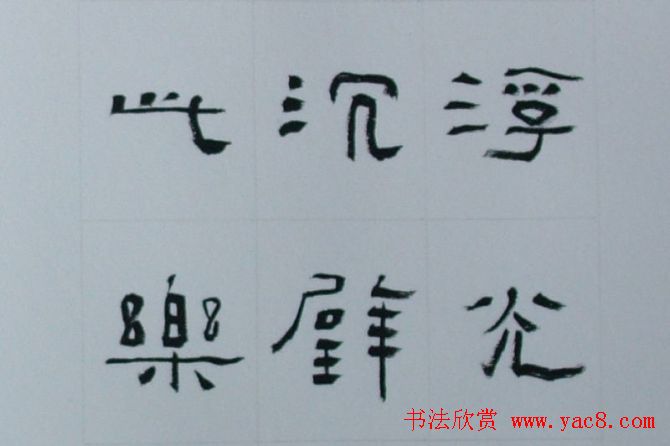 浮光
沉璧
此樂
书法欣赏 www.yac8.com